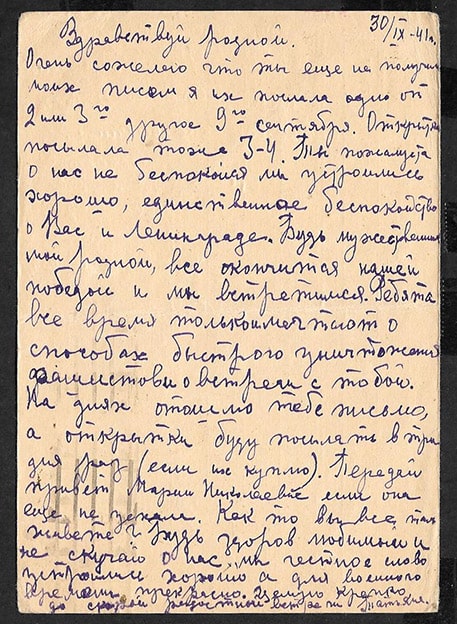 Здравствуй родной.
30/IX-41г.
Очень сожалею что ты еще не получил
моих писем я их послала одно от
2 или 3го другое 9го сентября. Открытки
посылала тоже 3-4. Ты пожалуста
о нас не беспокойся мы устроились
хорошо, единственное беспокойство
о Вас и Ленинграде. Будь мужественным
мой родной, все окончится нашей
победой и мы встретимся. Ребята
все время только мечтают о
способах быстрого уничтожения
фашистов и о встречи с тобой.
На днях отошлю тебе письмо,
а открытки буду посылать в три
дня раз (если их куплю). Передай
привет Марии Николаевне если она
еще не уехала. Как то вы все там
живете? Будь здоров любимый и
не скучай о нас, мы честное слово
устроились хорошо а для военного
времени прекрасно. Целую крепко
до скорой радостной встречи